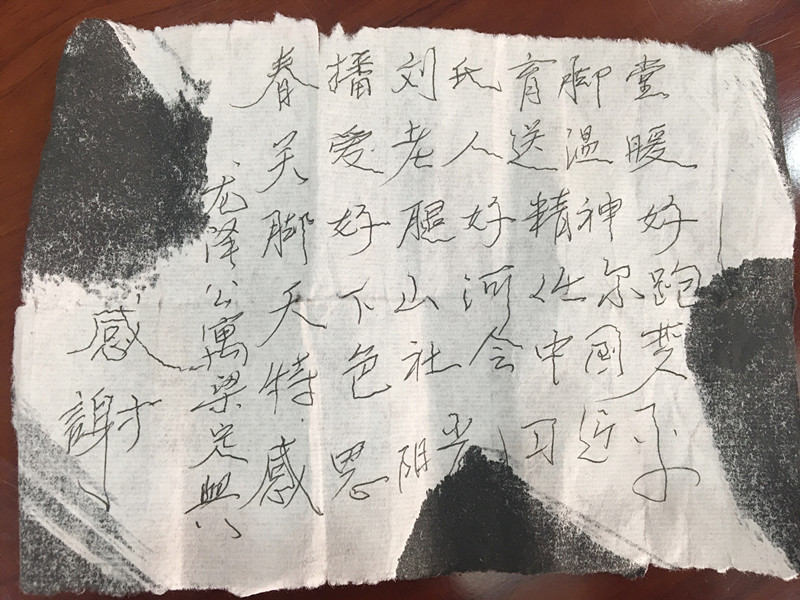 春播刘氏育脚堂
关爱老人送温暖
脚好腿好精神好
天下山河任尔跑
特色社会中国梦
感恩阳光习近平
龙泽公寓梁定興
感謝